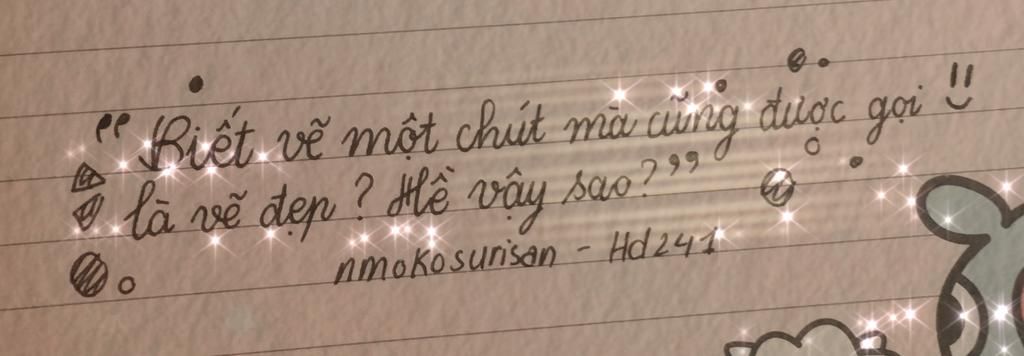 "Biết vẽ một chút mà cũng được gọi
là vẽ đẹp? Hề vậy sao?"
nmokosurisan - Hd241